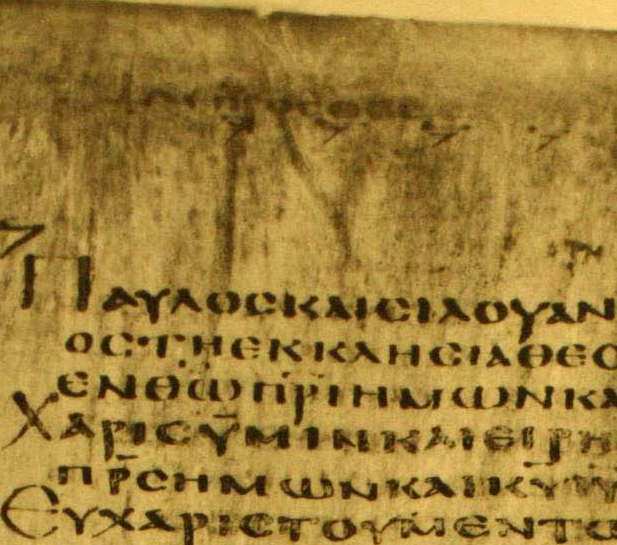 ΠΑΥΛΟϹΚΑΙϹΙΛΟΥΑΝ
ΟϹΤΗΕΚΚΛΗϹΙΑΘΕϹ
ΕΝΘ̅Ω̅Π̅Ρ̅Ι̅ΗΜΩΝΚΑ
ΧΑΡΙϹΥΜΙΝΚΑΙΕΙΡΗ
Π̅Ρ̅Ϲ̅ΗΜΩΝΚΑΙΚ̅Υ̅Ι̅Υ̅
ΕΥΧΑΡΙϹΤΟΥΜΕΝΤΩ